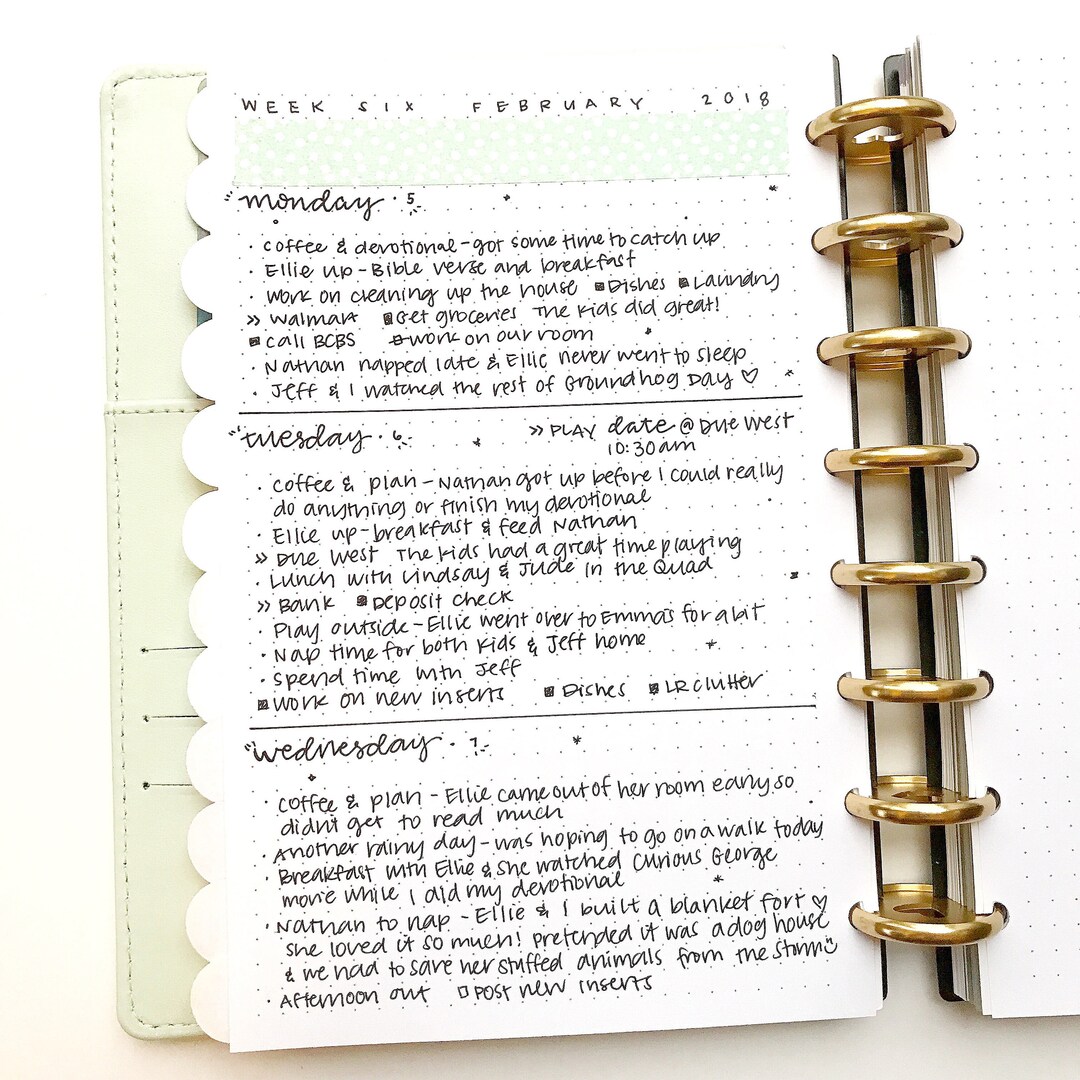 WEEK SIX FEBRUARY 2018
monday · 5
· coffee & devotional - got some time to catch up
· Ellie up - Bible verse and breakfast
· work on cleaning up the house ▪ Dishes ▪ Laundry
» Walmart ▪ Get groceries The kids did great!
▪ call BCBS □ work on our room
· Nathan napped late & Ellie never went to sleep
· Jeff & I watched the rest of Groundhog Day ♡
tuesday · 6 » PLAY date @ Due West
10:30am
· coffee & plan - Nathan got up before I could really
do anything or finish my devotional
· Ellie up - breakfast & feed Nathan
» Due West The kids had a great time playing
· Lunch with Lindsay & Jude in the Quad
» Bank ▪ Deposit check
· Play outside - Ellie went over to Emmas for a bit
· Nap time for both kids & Jeff home
· Spend time with Jeff
▪ work on new inserts ▪ Dishes ▪ LR clutter
wednesday · 7
· coffee & plan - Ellie came out of her room early so
didn't get to read much
· Another rainy day - was hoping to go on a walk today
· Breakfast with Ellie & she watched Curious George
movie while I did my devotional
· Nathan to nap - Ellie & I built a blanket fort ♡
she loved it so much! pretended it was a dog house
& we had to save her stuffed animals from the storm
· Afternoon out □ Post new inserts